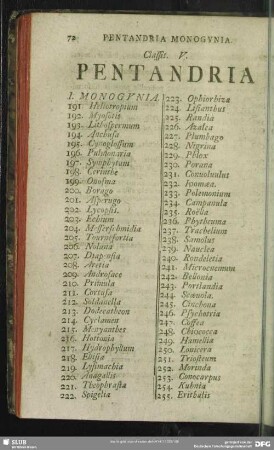 72 PENTANDRIA MONOGYNIA.
Classis. V.
PENTANDRIA
I. MONOGYNIA.
191. Heliotropium
192. Myosotis
193. Lithospermum
194. Anchusa
195. Cynoglossum
196. Pulmonaria
197. Symphytum
198. Cerinthe
199. Onosma
200. Borago
201. Asperugo
202. Lycopsis
203. Echium
204. Messerschmidia
205. Tournefortia
206. Nolana
207. Diapensia
208. Aretia
209. Androsace
210. Primula
211. Cortusa
212. Soldanella
213. Dodecatheon
214. Cyclamen
215. Menyanthes
216. Hottonia
217. Hydrophyllum
218. Ellisia
219. Lysimachia
220. Anagallis
221. Theophrasta
222. Spigelia
223. Ophiorhiza
224. Lisianthus
225. Randia
226. Azalea
227. Plumbago
228. Nigrina
229. Phlox
230. Porana
231. Convolvulus
232. Ipomæa.
233. Polemonium
234. Campanula
235. Roëlla
236. Phyteuma
237. Trachelium
238. Samolus
239. Nauclea
240. Rondeletia
241. Macrocnemum
242. Bellonia
243. Portlandia
244. Scævola.
245. Cinchona
246. Psychotria
247. Coffea
248. Chiococca
249. Hamellia
250. Lonicera
251. Triosteum
252. Morinda
253. Conocarpus
254. Kuhnia
255. Erithalis
SLUB
DFG